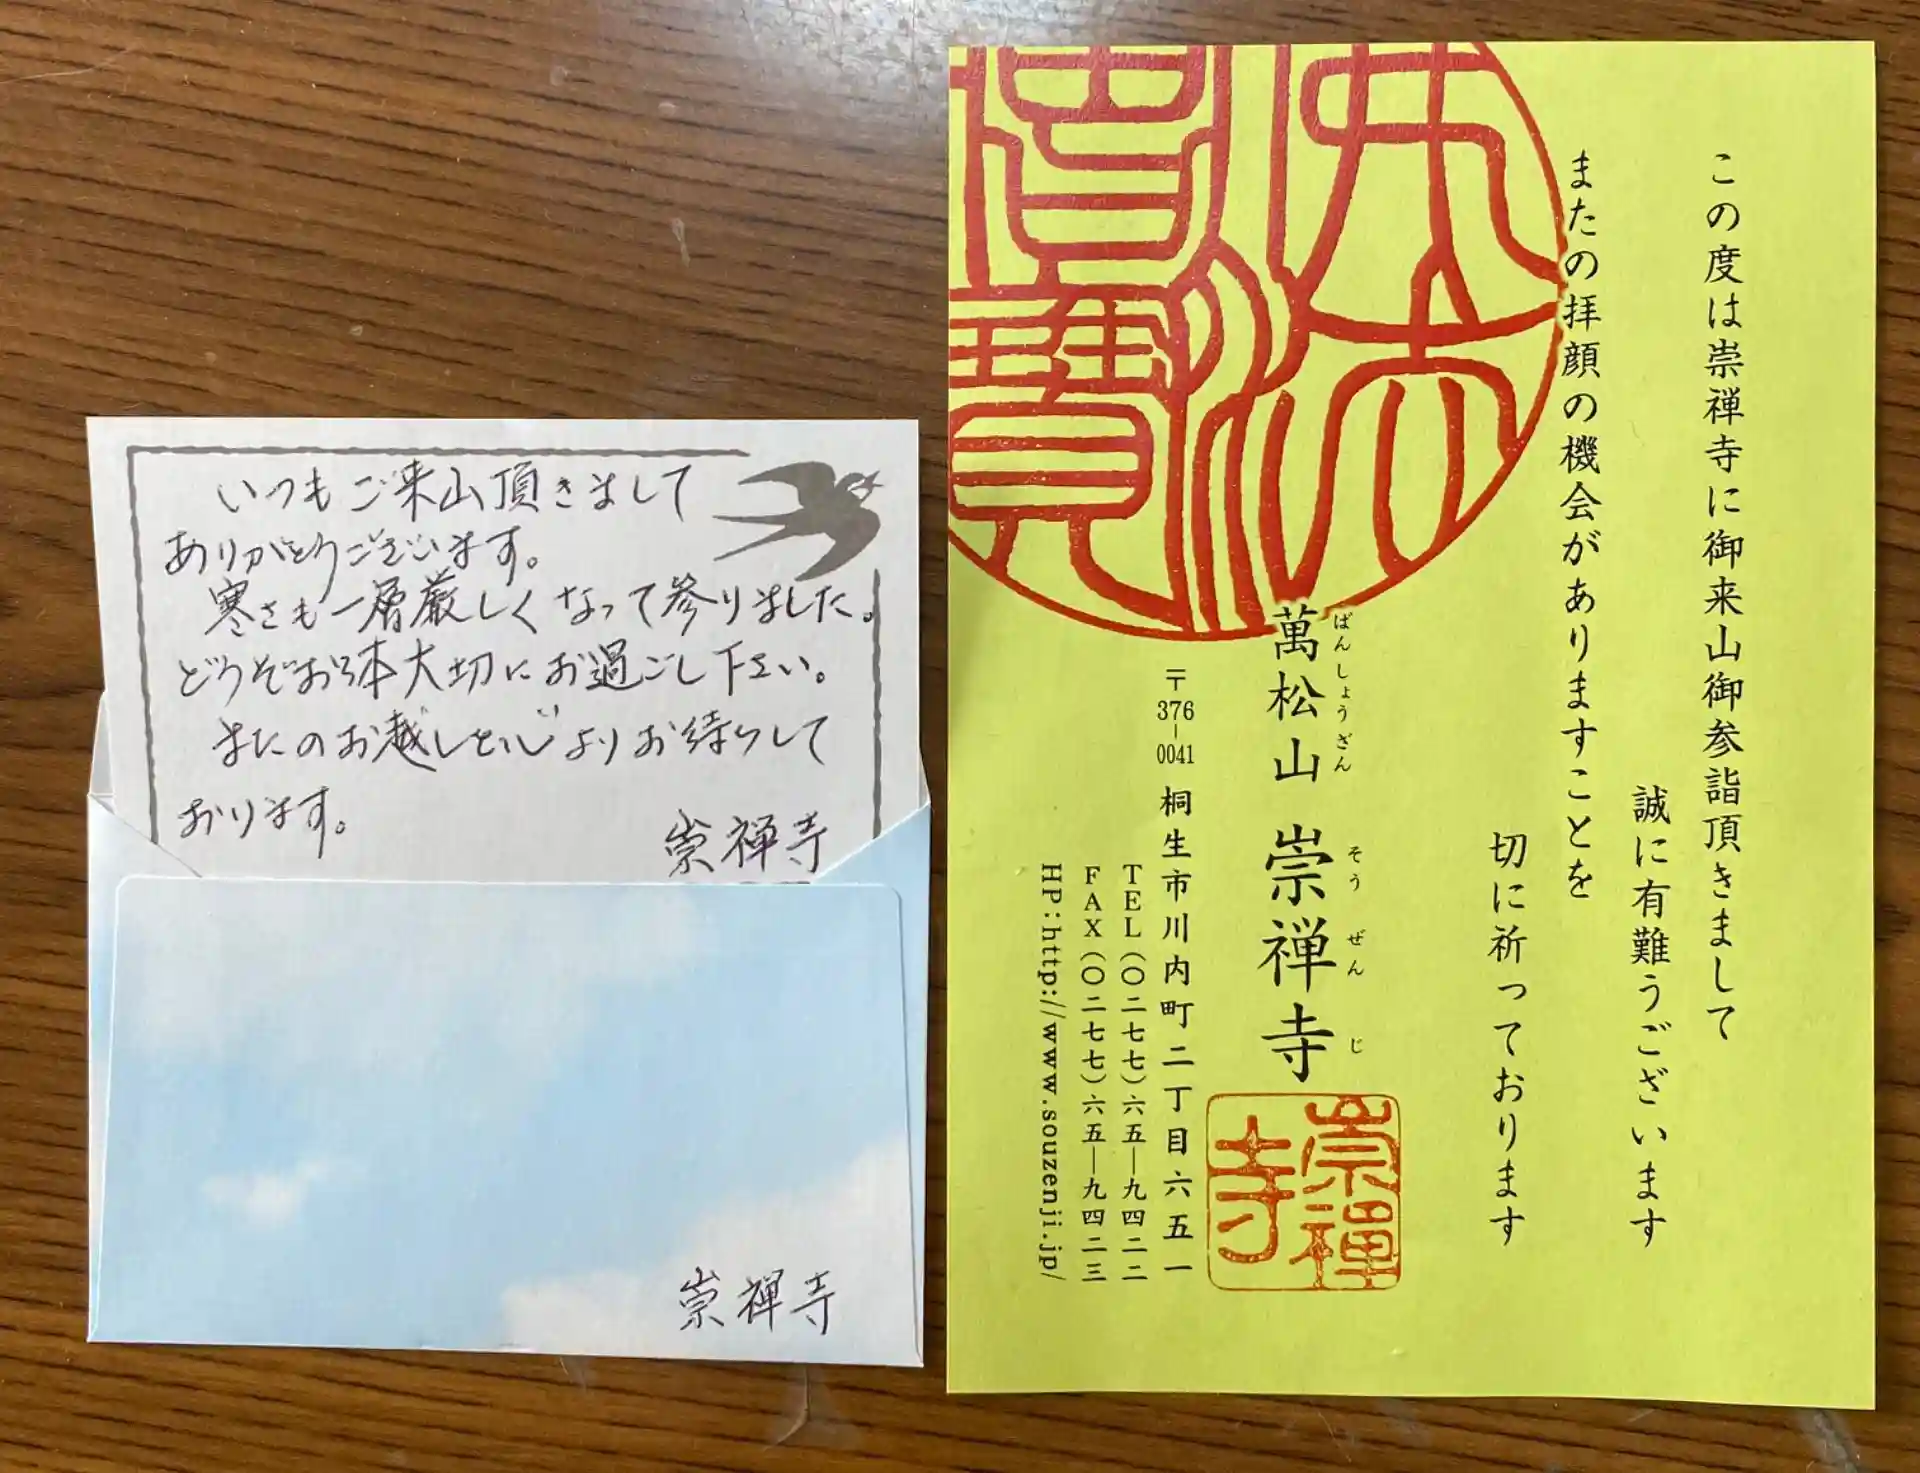 いつもご来山頂きまして
ありがとうございます。
寒さも一層厳しくなって参りました。
どうぞお体大切にお過ごし下さい。
またのお越しを心よりお待ちして
おります。
崇禅寺
崇禅寺
この度は崇禅寺に御来山御参詣頂きまして
誠に有難うございます
またの拝顔の機会がありますことを
切に祈っております
萬松山 崇禅寺
ばんしょうざん そうぜんじ
崇禅寺
〒376-0041 桐生市川内町二丁目六五一
TEL(〇二七七)六五―九四二二
FAX(〇二七七)六五―九四二三
HP:http://www.souzenji.jp/